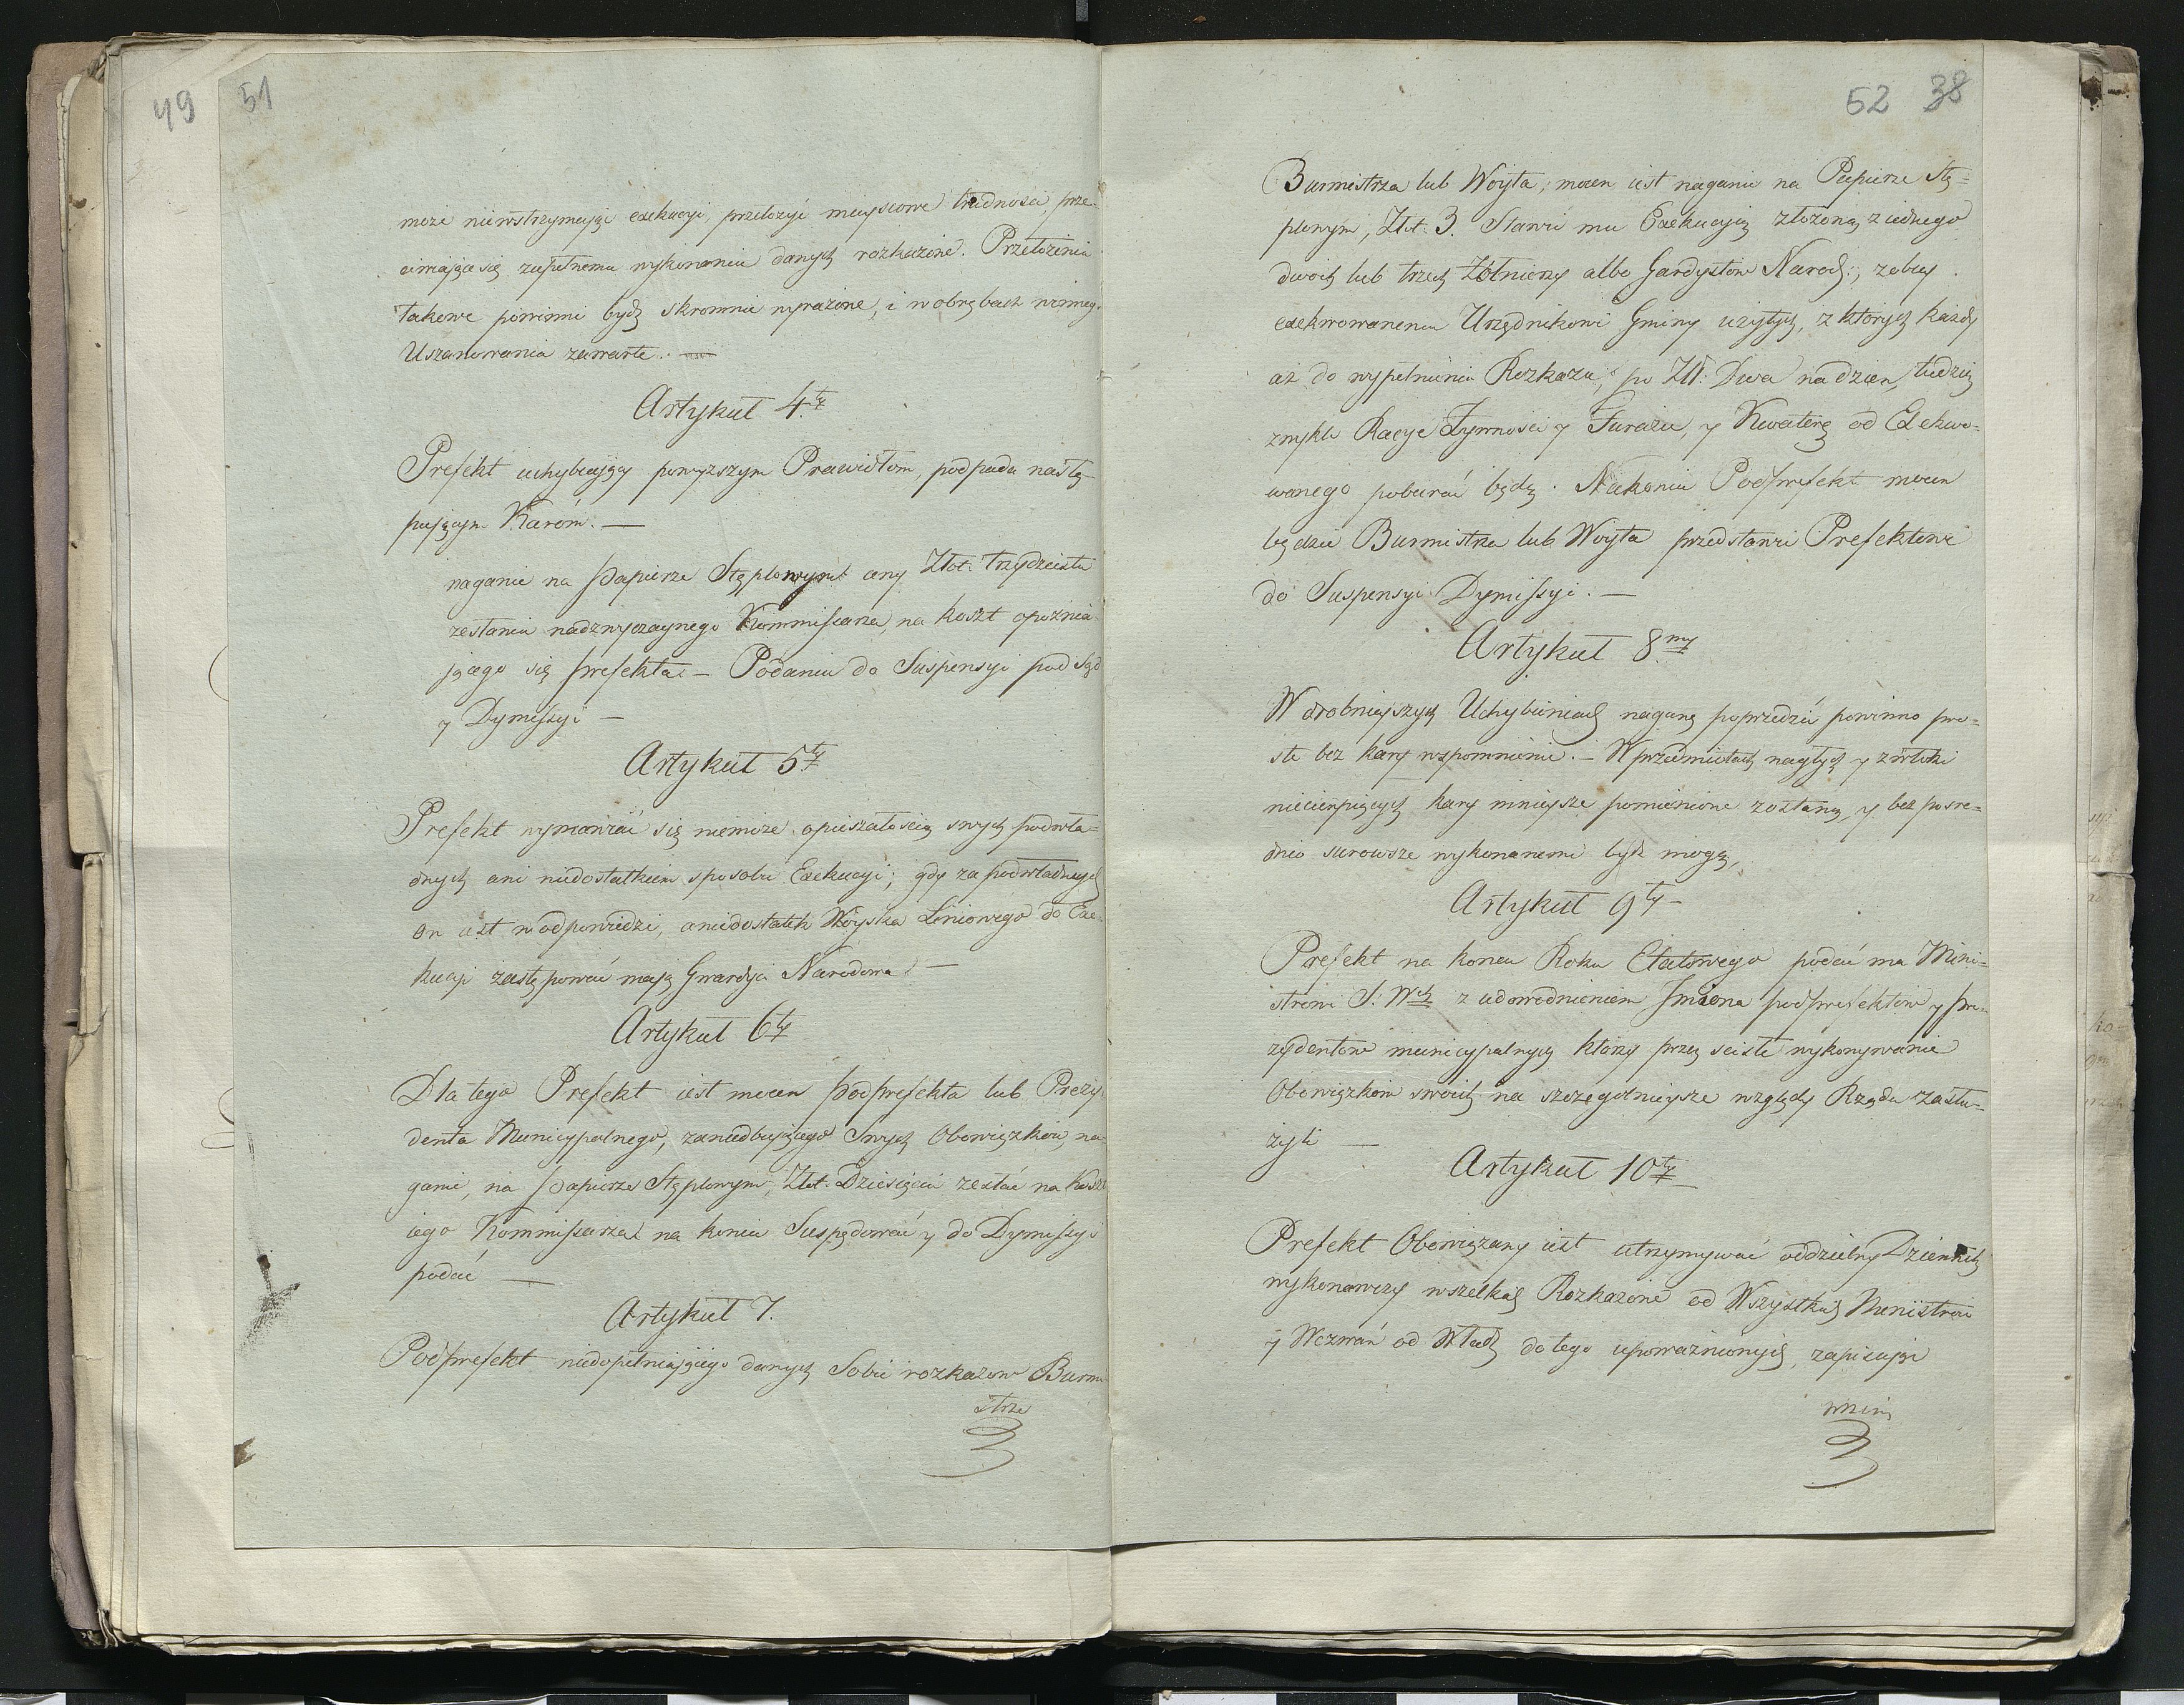 49 51
może niewstrzymując exekucyi, przełożyć mieyscowe trudności, prze-
ciwiające się zupełnemu wykonaniu danych rozkazów. Przełożenia
takowe powinni bydź skromnie wyrażone, i w obrębach winneg.
Uszanowania zawarte. —
Artykuł 4ty
Prefekt uchybiający powyższym Prawidłom, podpada nastę-
pującym Karóm. —
naganie na papierze Stęplowym ceny Złot: Trzydziestu
zesłaniu nadzwyczaynego Kommissarza, na koszt opoznia
jącego się prefekta — Podaniu do Suspensyi pod Sąd
y Dymissyi —
Artykuł 5ty
Prefekt wymawiać się niemoże opieszałością swych podwła-
dnych ani niedostatkiem sposobu Exekucyi; gdy za podwładnych
On iest w odpowiedzi, a niedostatek Woyska Liniowego do Exe-
kucyi zastępować mają Gwardyia Narodowa. —
Artykuł 6ty
Dla tego Prefekt iest mocen podprefekta lub Prezy-
denta Municypalnego, zaniedbującego Swych Obowiązków, na-
ganić, na papierze Stęplowym, Złot. Dziesięciu zesłać na koszt
iego Kommissarza na koniec Suspędować y do Dymissyi
podać —
Artykuł 7.
Podprefekt niedopełniającego danych Sobie rozkazow Burmi
strza
52 38
Burmistrza lub Woyta, mocen iest naganić na Papierze Stę-
plowym, Złot. 3. Stawić mu Exekucyią złożoną z iednego
dwoch lub trzech Żołnierzy albo Gardystow Narod:,
exekwowanemu Urzędnikowi Gminy użytych, z których każdy
aż do wypełnienia Rozkazu, po Złł: Dwa na dzien, tudzież
zwykłe Racye Żywności y Furażu, y Kwaterę od Exekwo-
wanego pobierać będą. Nakoniec Podprefekt mocen
będzie Burmistrza lub Woyta przedstawić Prefektowi
do Suspensyi Dymissyi. —
Artykuł 8my
W drobnieyszych Uchybieniach naganę poprzedzić powinno pro-
ste bez kary wspomnienie. — W przedmiotach nagłych y zwłoki
niecierpiących kary mnieysze pominione zostaną, y bezpośre-
dnio surowsze wykonanemi bydź mogą,
Artykuł 9ty —
Prefekt na koncu Roku Etatowego podać ma Mini-
strowi S. Wch z udowodnieniem Jmiona podprefektow y pre-
zydentow municypalnych którzy przez ścisłe wykonywanie
Obowiązków swoich na szczegolnieysze względy Rządu zasłu-
żyli —
Artykuł 10ty
Prefekt Obowiązany iest utrzymywać oddzielny Dziennik
wykonawczy wszelkich Rozkazów od Wszystkich Ministrów
y Wezwań od Władz do tego upoważnionych, zapisując
w nim